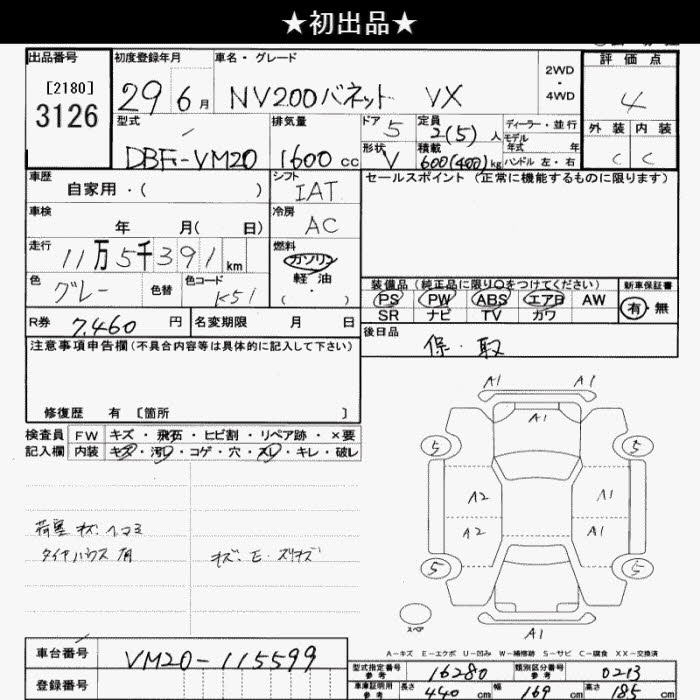 ★初出品★
出品番号 初度登録年月 車名・グレード 2WD・4WD 評価点
[2180]
3126 29 6月 NV200バネット VX 4
型式 排気量 ドア 5 定員 2(5)人 ディーラー・並行 外装 内装
モデル 年式 年
DBF-VM20 1600cc 形状 V 積載 600(400)kg ハンドル 左・右 C C
車歴 シフト セールスポイント(正常に機能するものに限ります)
自家用・( ) IAT
車検 冷房
年 月( 日) AC
走行 11万5千391km 燃料 ガソリン
軽油
( ・ )
色 グレー 色替 色コード K51
装備品(純正品に限り○をつけてください) 新車保証書
PS PW ABS エアB AW 有・無
SR ナビ TV カワ
R券 7,460円 名変期限 月 日
後日品 保・取
注意事項申告欄(不具合内容等は具体的に記入して下さい)
修復歴 有 〔箇所 〕
検査員 FW キズ・飛石・ヒビ割・リペア跡・×要
記入欄 内装 キズ・汚レ・コゲ・穴・スレ・キレ・破レ
A1 A1
A1
5 5
A2 A1
荷室 キズ ヘコミ
A2 A1
タイヤハウス 有 キズ・E・スリキズ
5 5
スペア
A1
A-キズ E-エクボ U-凹み W-補修跡 S-サビ C-腐食 XX-交換済
車台番号 VM20-115599
型式指定番号 参考 16280 類別区分番号 参考 0213
登録番号 車庫証明用 参考 長さ 440cm 幅 169cm 高さ 185cm